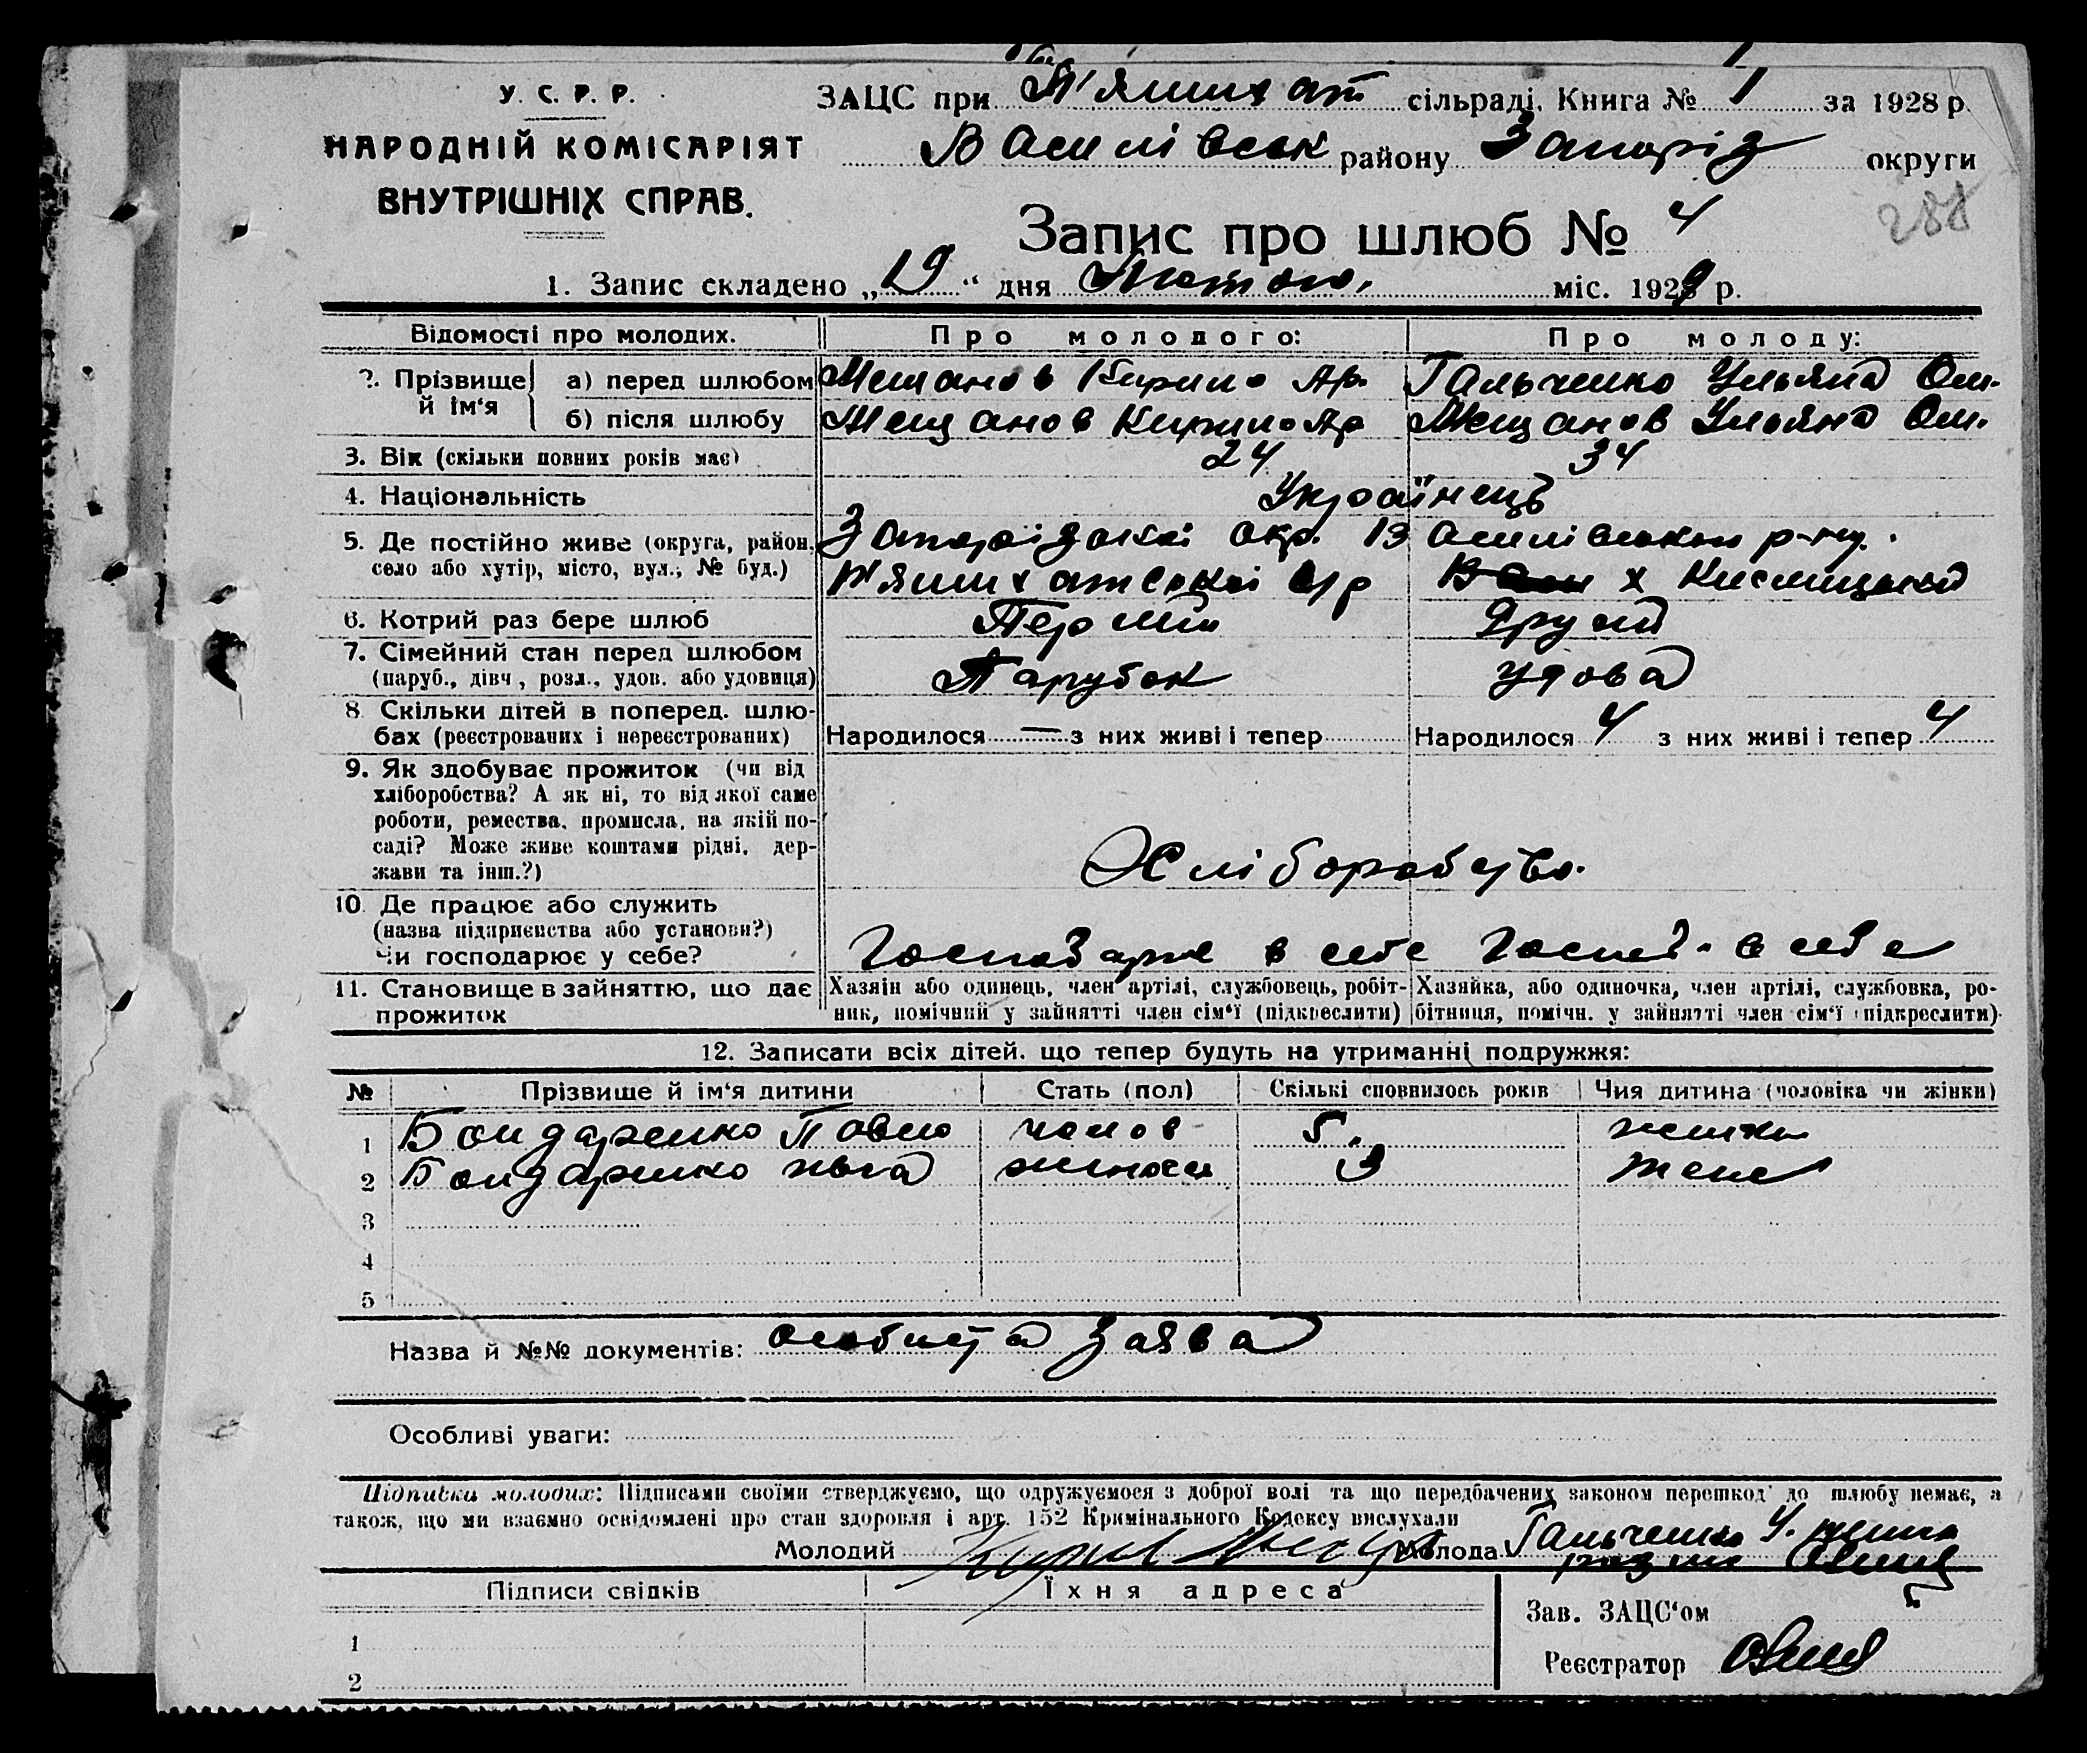 У. С. Р. Р.
НАРОДНІЙ КОМІСАРІЯТ
ВНУТРІШНІХ СПРАВ.
ЗАЦС при П'ятихат сільраді. Книга № 1 за 1928 р.
Василівськ району Запоріз округи
288
Запис про шлюб № 4
1. Запис складено „19“ дня Лютого. міс. 1929 р.
Відомості про молодих. Про молодого: Про молоду:
2. Прізвище й ім‘я а) перед шлюбом Мещанов Кирило Ар. Гальченко Ульяна Ом.
б) після шлюбу Мещанов Кирило Ар Мещанов Ульяна Ом.
3. Вік (скільки повних років має) 24 34
4. Національність Українець
5. Де постійно живе (округа, район, Запорізької окр. Василівського р-ну.
село або хутір, місто, вул., № буд.) П'ятихатської с/р х
6. Котрий раз бере шлюб Перший Другий
7. Сімейний стан перед шлюбом
(паруб., дівч., розл., удов. або удовиця) Парубок удова
8. Скільки дітей в поперед. шлю-
бах (реєстрованих і нереєстрованих) Народилося — з них живі і тепер Народилося 4 з них живі і тепер 4
9. Як здобуває прожиток (чи від
хліборобства? А як ні, то від якої саме
роботи, ремества, промисла, на якій по-
саді? Може живе коштами рідні, дер-
жави та інш.?) Хліборобство.
10. Де працює або служить
(назва підприємства або установи?)
Чи господарює у себе? Господарює в себе Господ. в себе
11. Становище в зайняттю, що дає Хазяін або одинець, член артілі, службовець, робіт- Хазяйка, або одиночка, член артілі, службовка, ро-
прожиток ник, помічний у зайнятті член сім‘ї (підкреслити) бітниця, помічн. у зайнятті член сім‘ї (підкреслити)
12. Записати всіх дітей. що тепер будуть на утриманні подружжя:
№ Прізвише й ім‘я дитини Стать (пол) Скількі сповнилось років Чия дитина (чоловіка чи жінки)
1 Бондаренко Павло чолов 5. жінки
2 Бондаренко 3
3
4
5
Назва й №№ документів: особиста заява
Особливі уваги:
Підписки молодих: Підписами своїми стверджуємо, що одружуємося з доброї волі та що передбачених законом перешкод до шлюбу немає, а
також, що ми взаємно освідомлені про стан здоровля і арт. 152 Кримінального Кодексу вислухали
Молодий Кирил Молода Гальченко У.
Підписи свідків Їхня адреса
Зав. ЗАЦС‘ом
1
Реєстратор
2